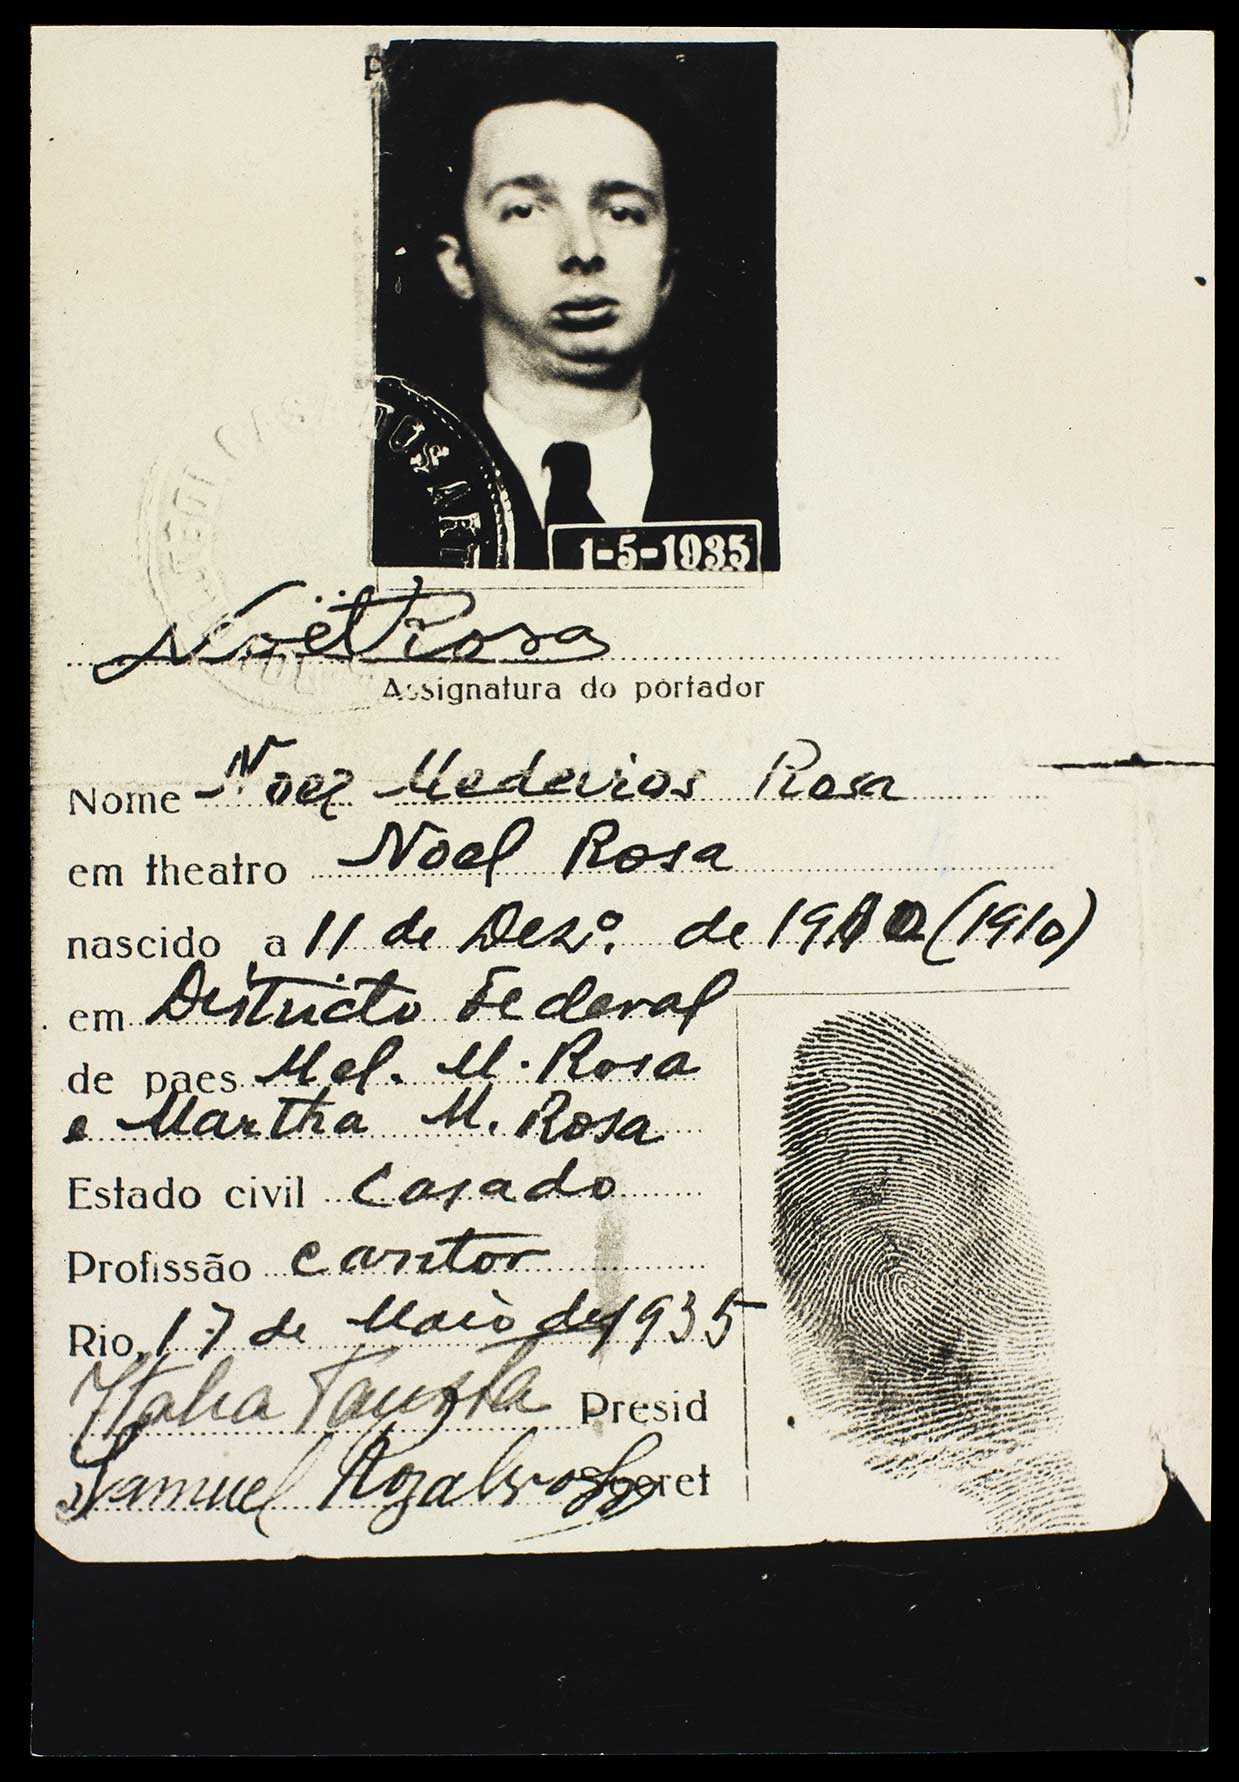 1-5-1935
Noël Rosa
Assignatura do portador
Nome Noel Medeiros Rosa
em theatro Noel Rosa
nascido a 11 de Dezº. de 1910 (1910)
em Districto Federal
de paes Mel. M. Rosa
e Martha M. Rosa
Estado civil Casado
Profissão cantor
Rio, 17 de Maio de 1935
Italia Fausta Presid
Samuel Secret